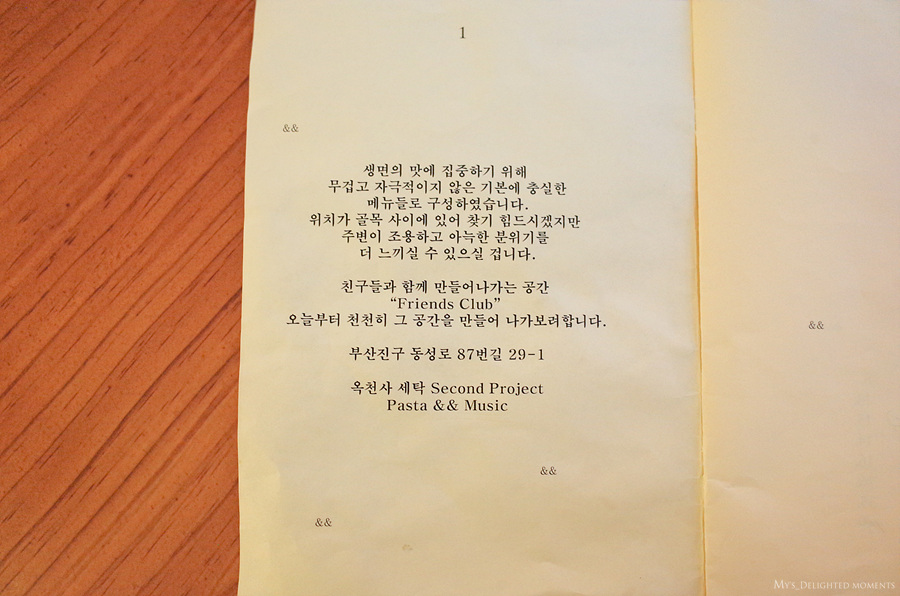 1
&&
생면의 맛에 집중하기 위해
무겁고 자극적이지 않은 기본에 충실한
메뉴들로 구성하였습니다.
위치가 골목 사이에 있어 찾기 힘드시겠지만
주변이 조용하고 아늑한 분위기를
더 느끼실 수 있으실 겁니다.
친구들과 함께 만들어나가는 공간
“Friends Club”
오늘부터 천천히 그 공간을 만들어 나가보려합니다.
부산진구 동성로 87번길 29-1
옥천사 세탁 Second Project
Pasta && Music
&&
&&
&&
My's_Delighted moments